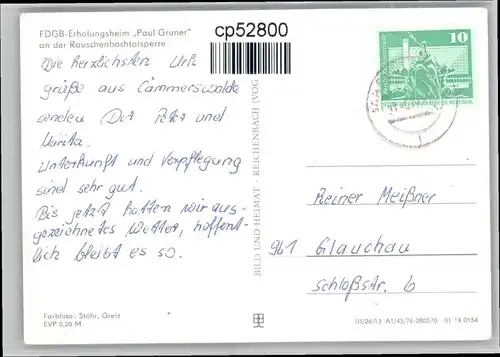 FDGB-Erholungsheim „Paul Gruner"
an der Rauschenbachtalsperre
cp52800
10
Die herzlichsten Urlaubs-
grüße aus Cämmerswalde
senden Dir Peter und
Marita.
Unterkunft und Verpflegung
sind sehr gut.
Bis jetzt hatten wir aus-
gezeichnetes Wetter, hoffent-
lich bleibt es so.
BILD UND HEIMAT · REICHENBACH (VOG
Reiner Meißner
961 Glauchau
Schloßstr. 6
Farbfoto: Stöhr, Greiz
EVP 0,20 M
III/26/13 A1/43/76-280570 01 14 0154